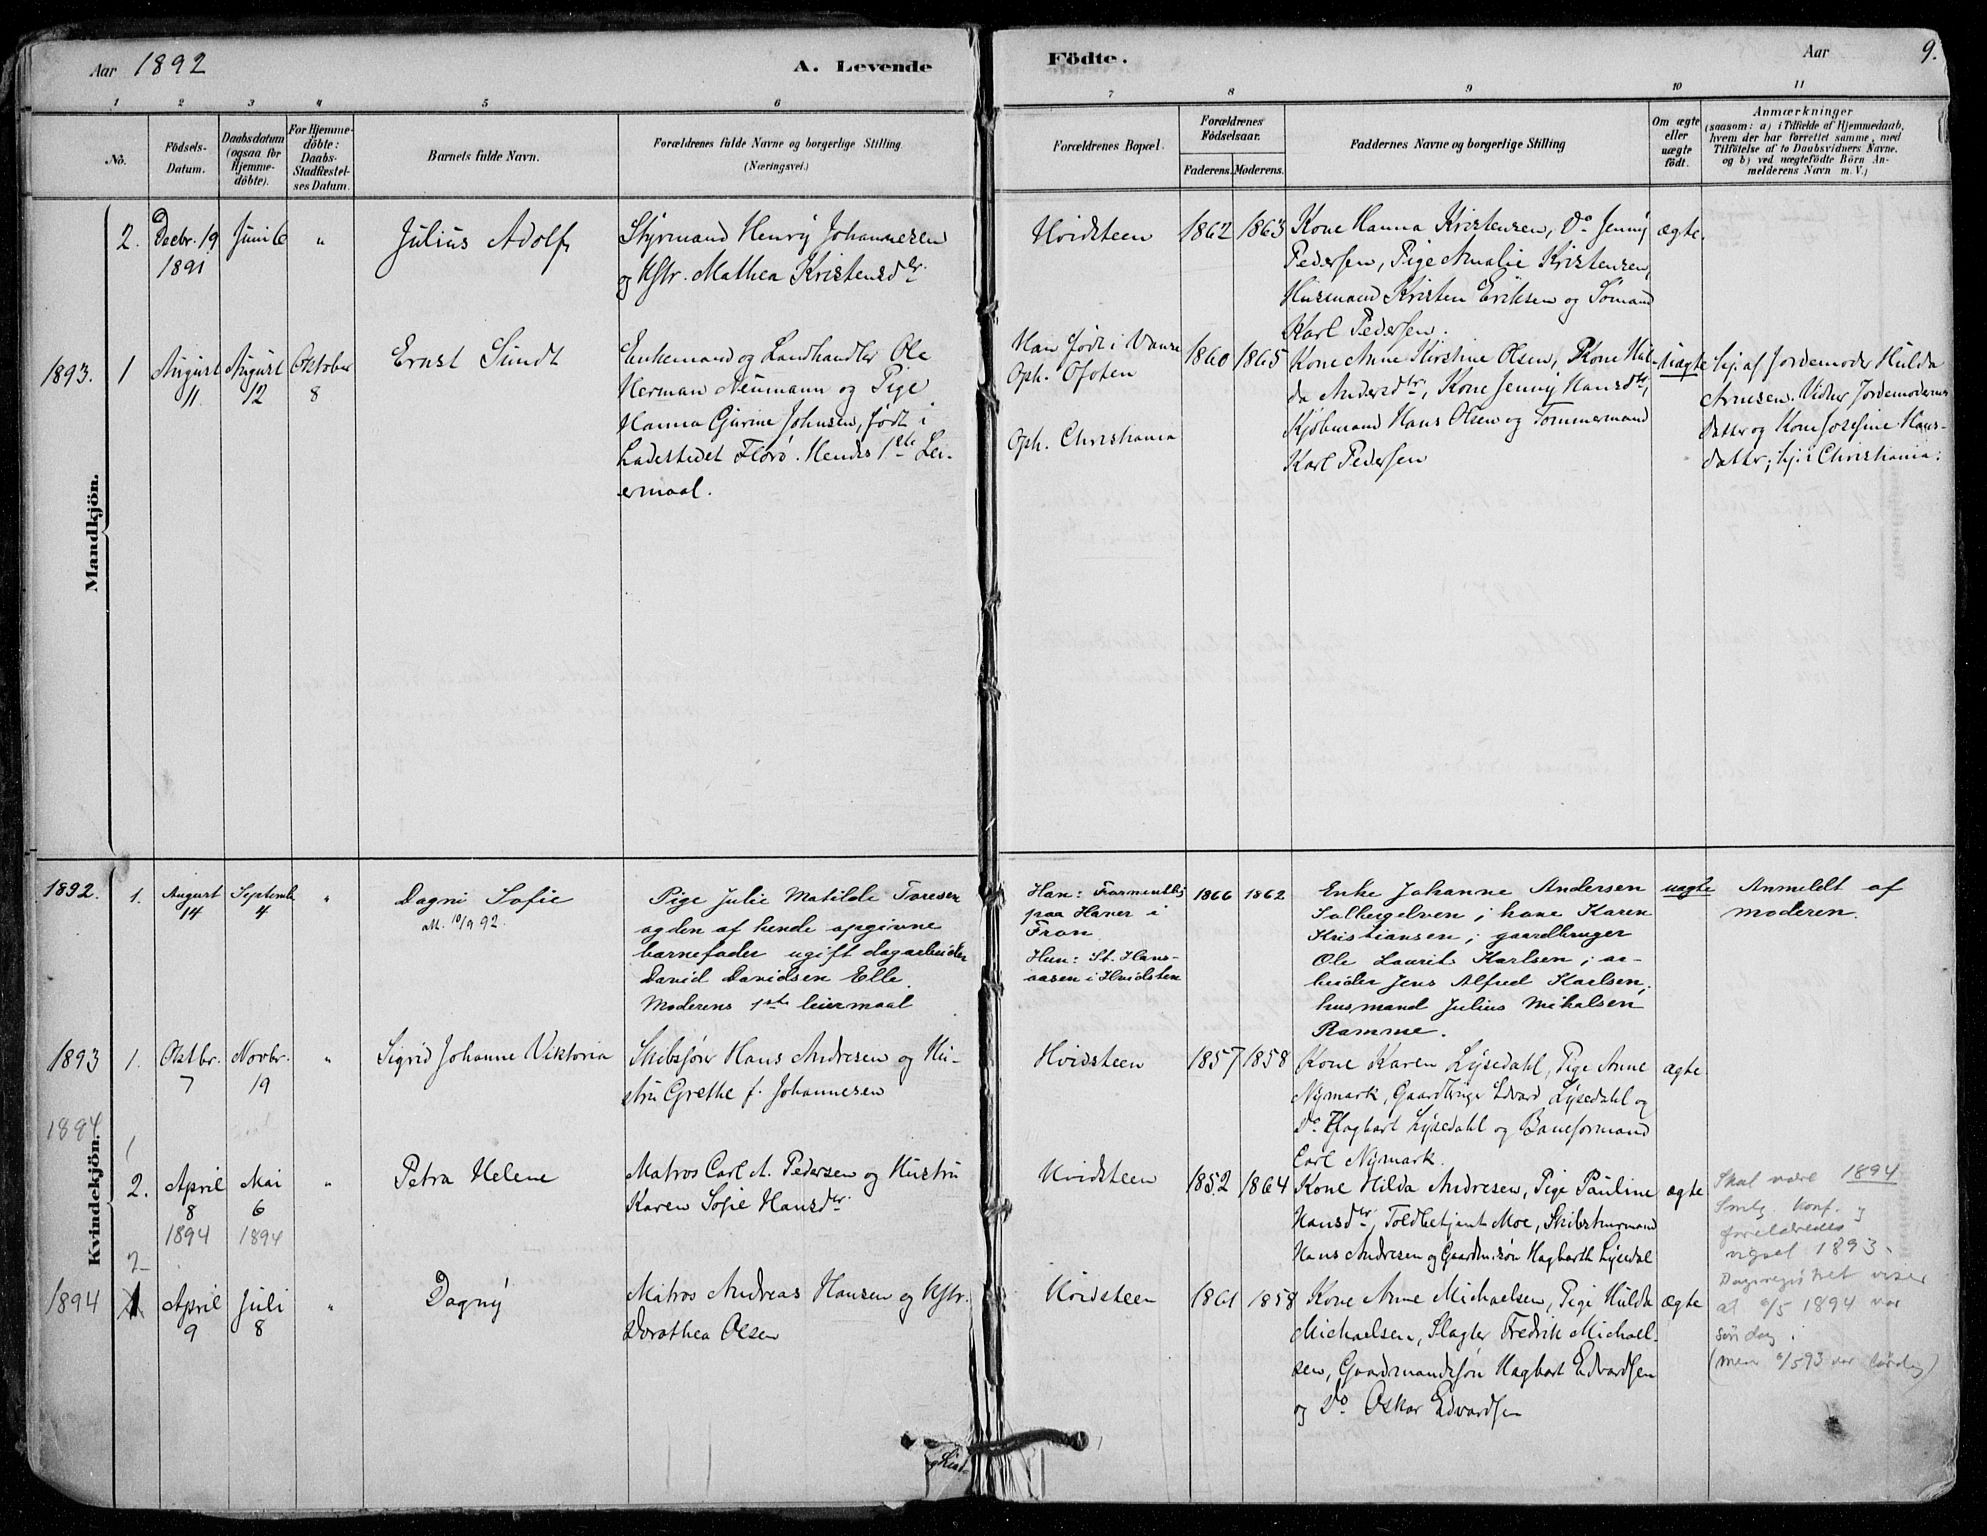 Aar 1892
A. Levende
Födte.
Aar
9.
1 2 3 4 5 6 7 8 9 10 11
No.
Födsels-
Datum.
Daabsdatum
(ogsaa for
Hjemme-
döbte).
For Hjemme-
döbte:
Daabs-
Stadfæstel-
ses Datum.
Barnets fulde Navn.
Forældrenes fulde Navne og borgerlige Stilling
(Næringsvei.)
Forældrenes Bopæl.
Forældrenes
Födselsaar.
Faderens. Moderens.
Faddernes Navne og borgerlige Stilling
Om ægte
eller
uægte
födt.
Anmærkninger
(saasom: a) i Tilfælde af Hjemmedaab,
hvem der har forrettet samme, med
Tilföielse af to Daabsvidners Navne,
og b) ved uægtefödte Börn An-
melderens Navn m. V.)
Mandkjön.
2.
Decbr. 19
1891
Juni 6
"
Julius Adolf
Styrmand Henry Johannesen
og Hstr. Mathea Kristensdtr.
Hvidsteen
1862
1863
Kone Hanna Kristensen, Do Jenny
Pedersen, Pige Amalie Kristensen,
Husmand Kristen Eriksen og Sömand
Karl Pedersen.
ægte.
1893.
1
August
11.
August
12
Oktober
8
Ernst Sundt
Enkemand og Landhandler Ole
Herman Neumann og Pige
Hanna Gurine Johnsen, født i
Ladestedet Florö. Hendes 1ste Lei-
ermaal.
Han född i Vanse
Oph. Ofoten
Oph. Christiania
1860
1865
Kone Anne Kirstine Olsen, Kone Hul-
da Andersdtr, Kone Jenny Hansdtr,
Kjöbmand Hans Olsen og Tömmermand
Karl Pedersen
Uægte
hj. af Jordemoder Hulda
Arnesen. Vidner Jordemoderens
Datter og Kone Josefine Hans-
datter; hj. i Christiania.
Kvindekjön.
1892.
1.
August
14
Septemb.
4
"
Dagni Sofie
att. 10/9 92.
Pige Julie Matilde Toresen
og den af hende opgivne
barnefader ugift dagarbeider
David Davidsen Elle.
Moderens 1ste leiermaal
Han:
paa Haner i
Fron
Hun: St. Hans-
aasen i Hvidsten
1866
1862
Enke Johanne Andersen
Solbergelven; kone Karen
Kristiansen; gaardbruger
Ole Laurits Karlsen; ar-
beider Jens Alfred Karlsen,
husmand Julius Mikalsen
Ramme.
uægte
Anmeldt af
moderen.
1893
1.
Oktbr.
7
Novbr.
19
"
Sigrid Johanne Viktoria
Skibsfører Hans Andresen og Hu-
stru Grethe f. Johannesen
Hvidsteen
1857
1858
Kone Karen Lysedahl, Pige Anne
Nymark, Gaardbruger Edvard Lysedahl og
Do. Hagbart Lysedahl og Baneformand
Carl Nymark.
ægte
1894
1
2.
April
8
1894
Mai
6
1894
"
Petra Helene
Matros Carl A. Pedersen og Hustru
Karen Sofie Hansdtr.
Hvidsteen
1852
1864
Kone Hilda Andresen, Pige Pauline
Hansdtr, Toldbetjent Moe, Skibstürmand
Hans Andresen og Gaardm.søn Hagbarth Lysedal
ægte
Skal være 1894
Smlg. konf. og
foreldrenes
vigsel 1893.
Dagregistret viser
at 6/5 1894 var
söndag.
(men 6/5 93 var lördag)
2
1894
1
April
9
Juli
8
"
Dagny
Matros Andreas Hansen og Hstr.
Dorothea Olsen
Hvidsteen
1861
1858
Kone Anne Michaelsen, Pige Hulda
Michaelsen, Slagter Fredrik Michael-
sen, Gaardmandssøn Hagbart Edvardsen
og Do Oskar Edvardsen
ægte